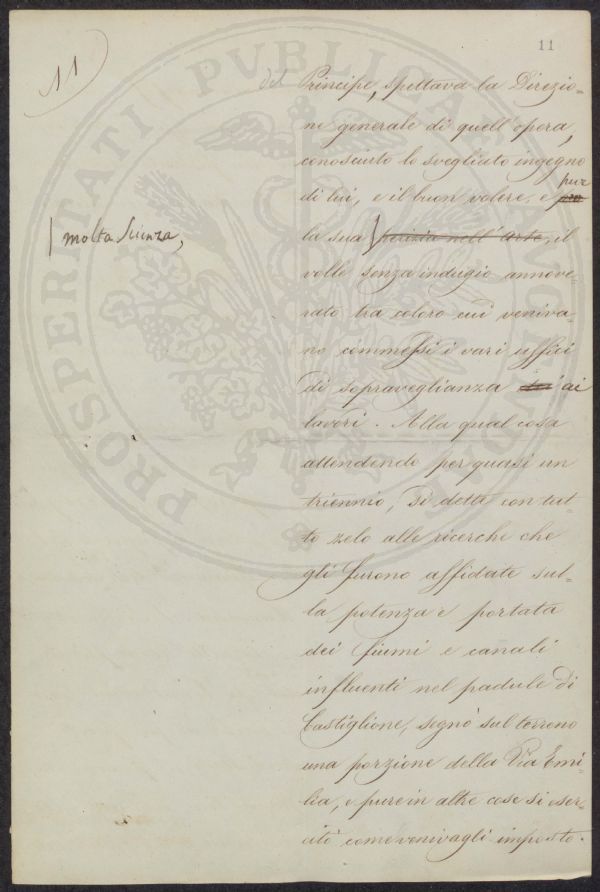 11
11
del Principe, spettava la Direzio=
ne generale di quell'opera,
conosciuto lo svegliato ingegno
di lui, e il buon volere, e per pur
la sua perizia nell'arte, il
molta scienza,
volle senza indugio annove
rato tra coloro cui veniva=
no commessi i vari uffici
di sopraveglianza ai
lavori. Alla qual cosa
attendendo per quasi un
triennio, si dette con tut=
to zelo alle ricerche che
gli furono affidate sul=
la potenza e portata
dei fiumi e canali
influenti nel padule di
Castiglione, segnò sul terreno
una porzione della Via Emi=
lia, e pure in altre cose si eser=
citò come venivagli imposto.
PROSPERITATI PVBLICAE